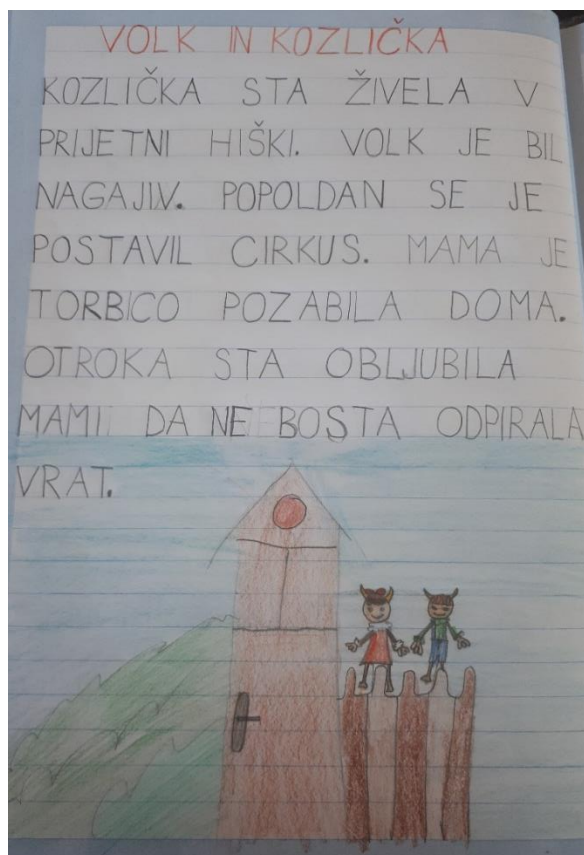 VOLK IN KOZLIČKA
KOZLIČKA STA ŽIVELA V
PRIJETNI HIŠKI. VOLK JE BIL
NAGAJIV. POPOLDAN SE JE
POSTAVIL CIRKUS. MAMA JE
TORBICO POZABILA DOMA.
OTROKA STA OBLJUBILA
MAMI DA NE BOSTA ODPIRALA
VRAT.